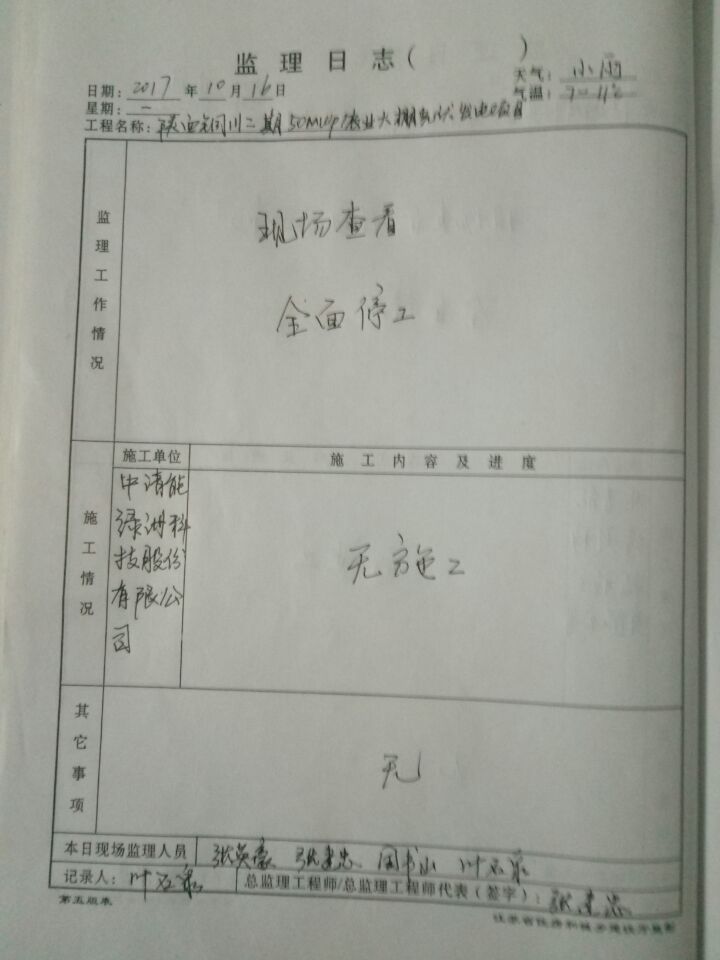 监理日志（ ）
日期：2017年10月16日 天气：小雨
星期：一 气温：7-11℃
工程名称：陕西铜川二期50MWp农业大棚光伏发电项目
监理工作情况
现场查看
全面停工
施工情况
施工单位 施工内容及进度
中清能
绿洲科
技股份
有限公
司
无施工
其它事项
无
本日现场监理人员 张英豪 张建忠 周书山 叶石泉
记录人：叶石泉 总监理工程师/总监理工程师代表（签字）：张建忠
第五版表 江苏省住房和城乡建设厅监制